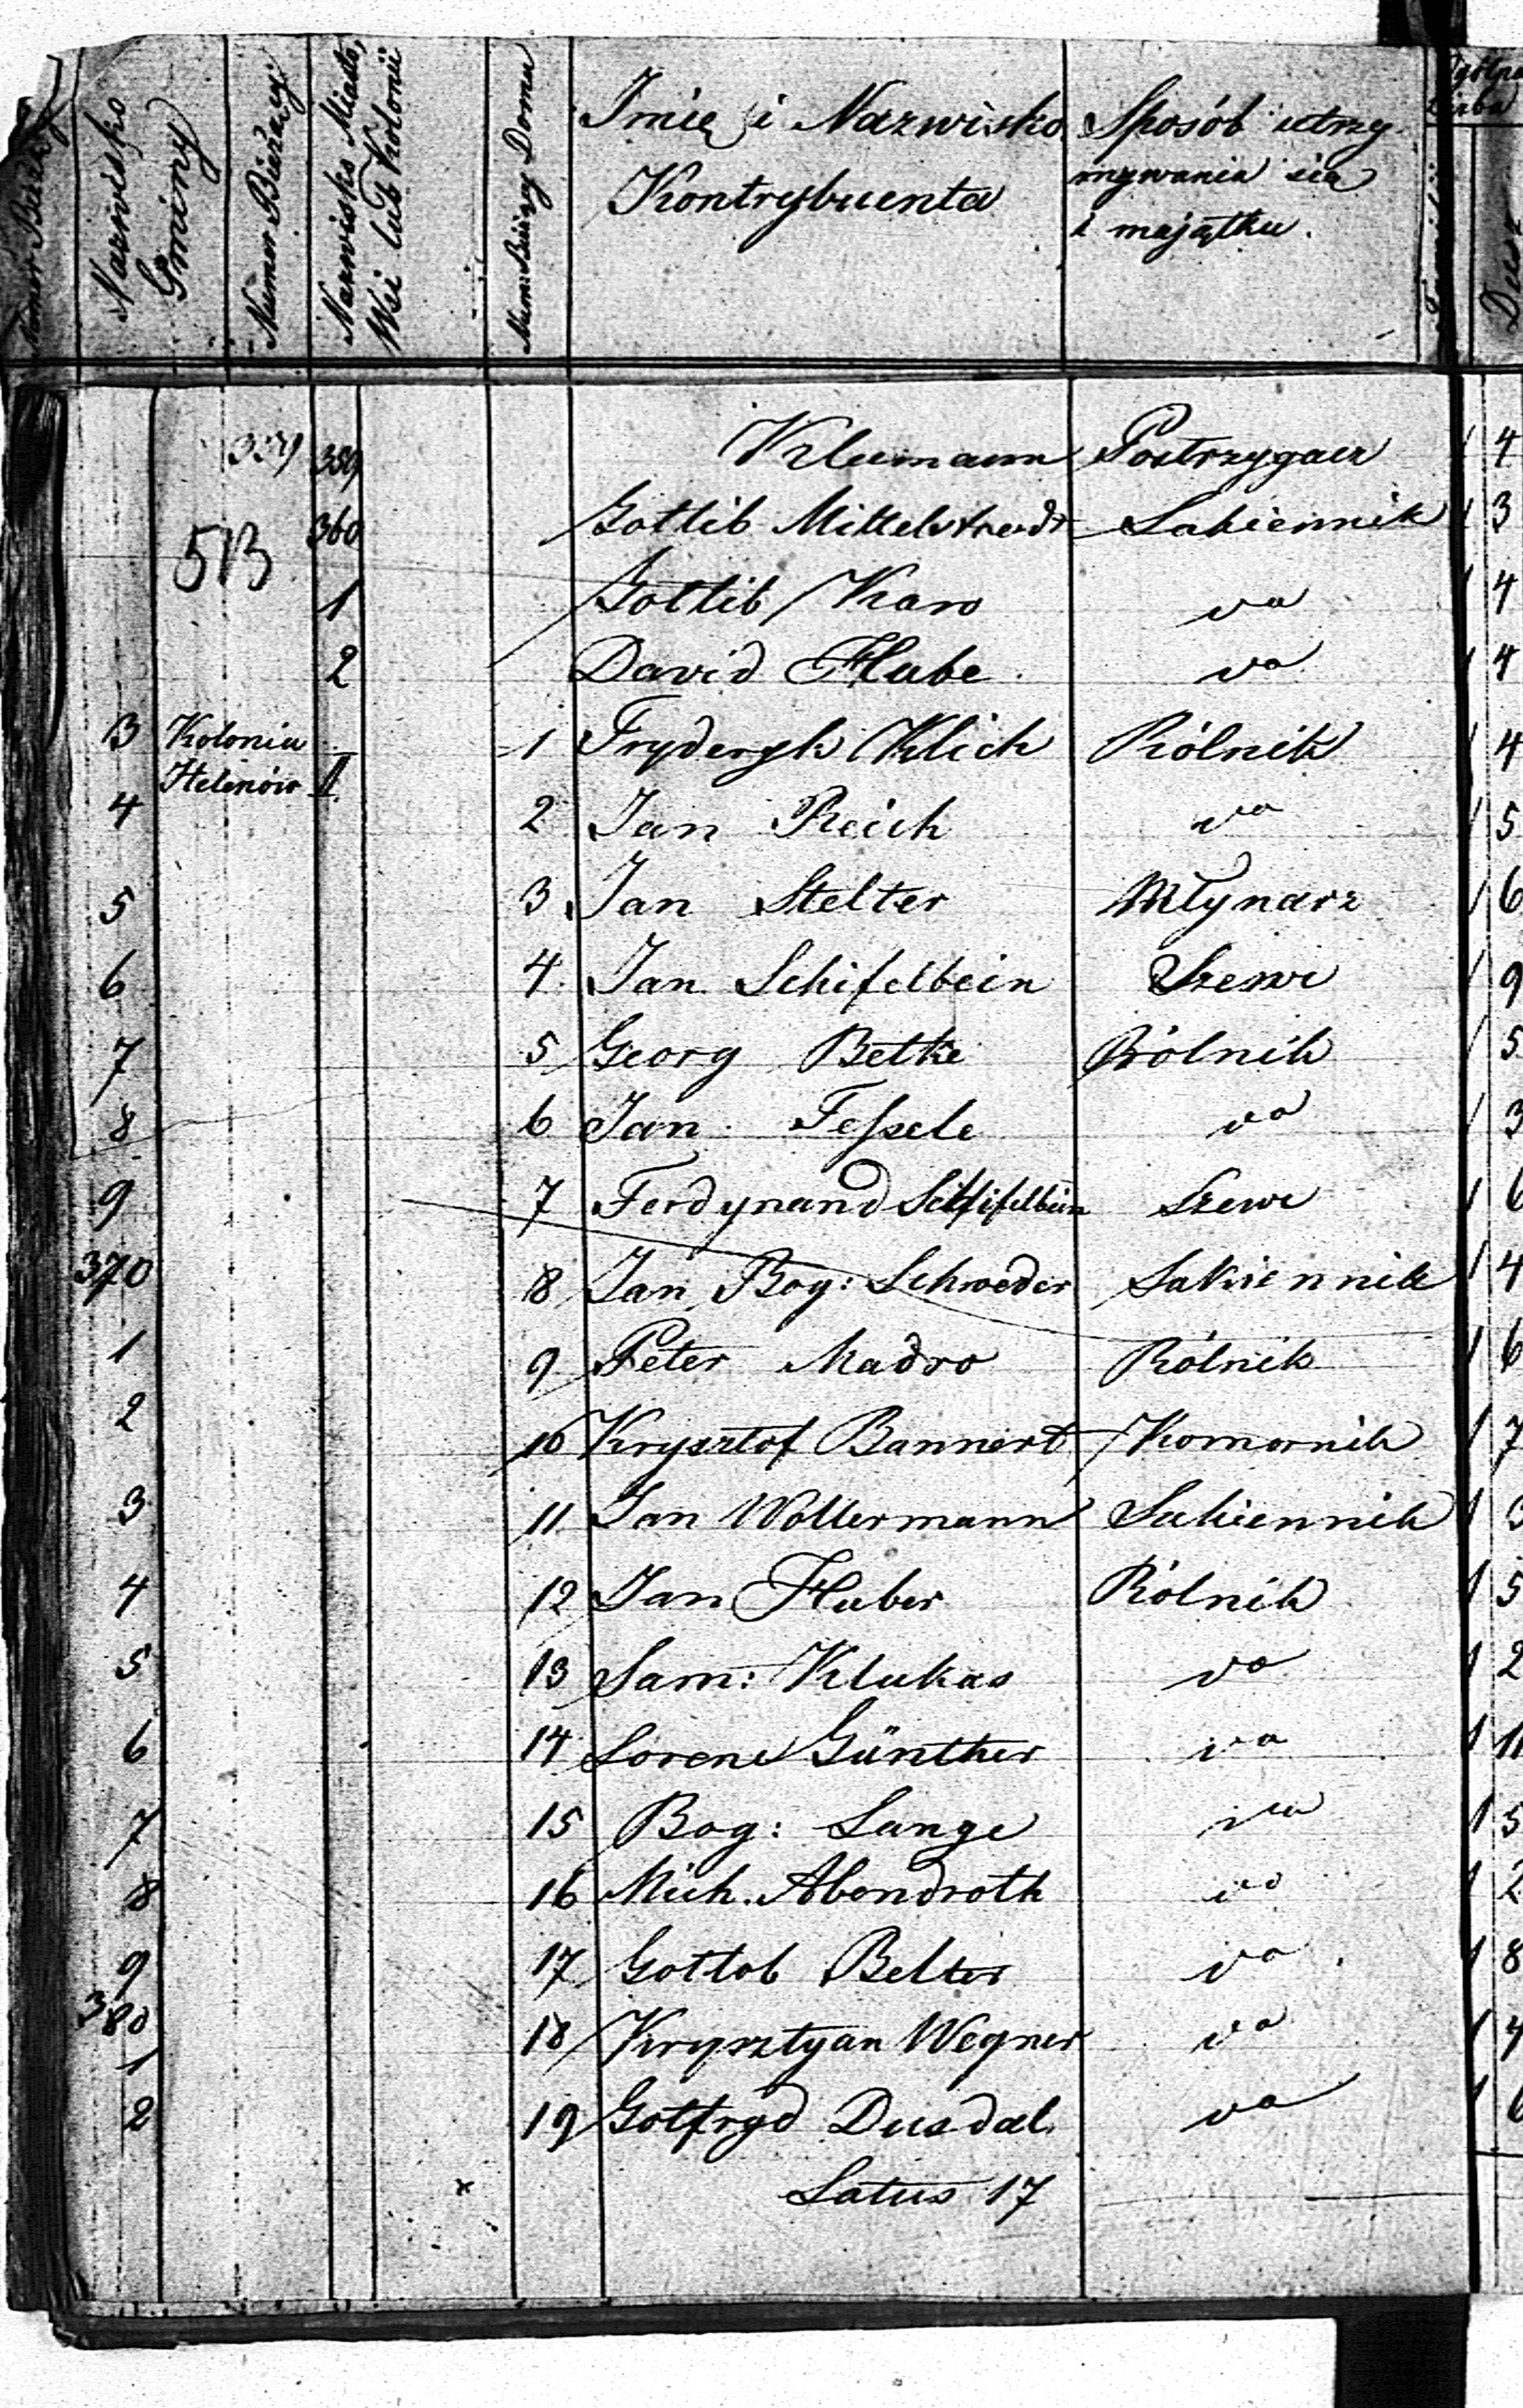 Numer Bieżący
Nazwisko Gminy
Numer Bieżący
Nazwisko Miasta,
Wsi lub Kolonii
Num: Bieżący Domu
Imię i Nazwisko
Kontrybuenta
Sposób utrzy-
mywania się
i majątku.
359 359 Klumann Postrzygacz 1 4
513 360 Gottlib Mittelstredt Sukiennik 1 3
1 Gottlib Karo vo 1 4
2 David Habe vo 1 4
3 Kolonia 1 Fryderyk Klich Rólnik 1 4
Helenów II.
4 2 Jan Reich vo 1 5
5 3 Jan Stelter Młynarz 1 6
6 4 Jan Schifelbein Szewc 1 9
7 5 Georg Betke Rólnik 1 5
8 6 Jan Feßele vo 1 3
9 7 Ferdynand Schifelbein Szewc 1 6
370 8 Jan Bog: Schroeder Sukiennik 1 4
1 9 Peter Madro Rólnik 1 6
2 10 Krysztof Bannert Komornik 1 7
3 11 Jan Woltermann Sukiennik 1 3
4 12 Jan Huber Rólnik 1 5
5 13 Sam: Klukas vo 1 2
6 14 Lorenc Günther vo 1 11
7 15 Bog: Lange vo 1 5
8 16 Mich. Abendroth vo 1 2
9 17 Gottlob Belter vo 1 8
380
1 18 Krysztyan Wegner vo 1 4
2 19 Gotfryd Dusdal vo 1 6
Latus 17